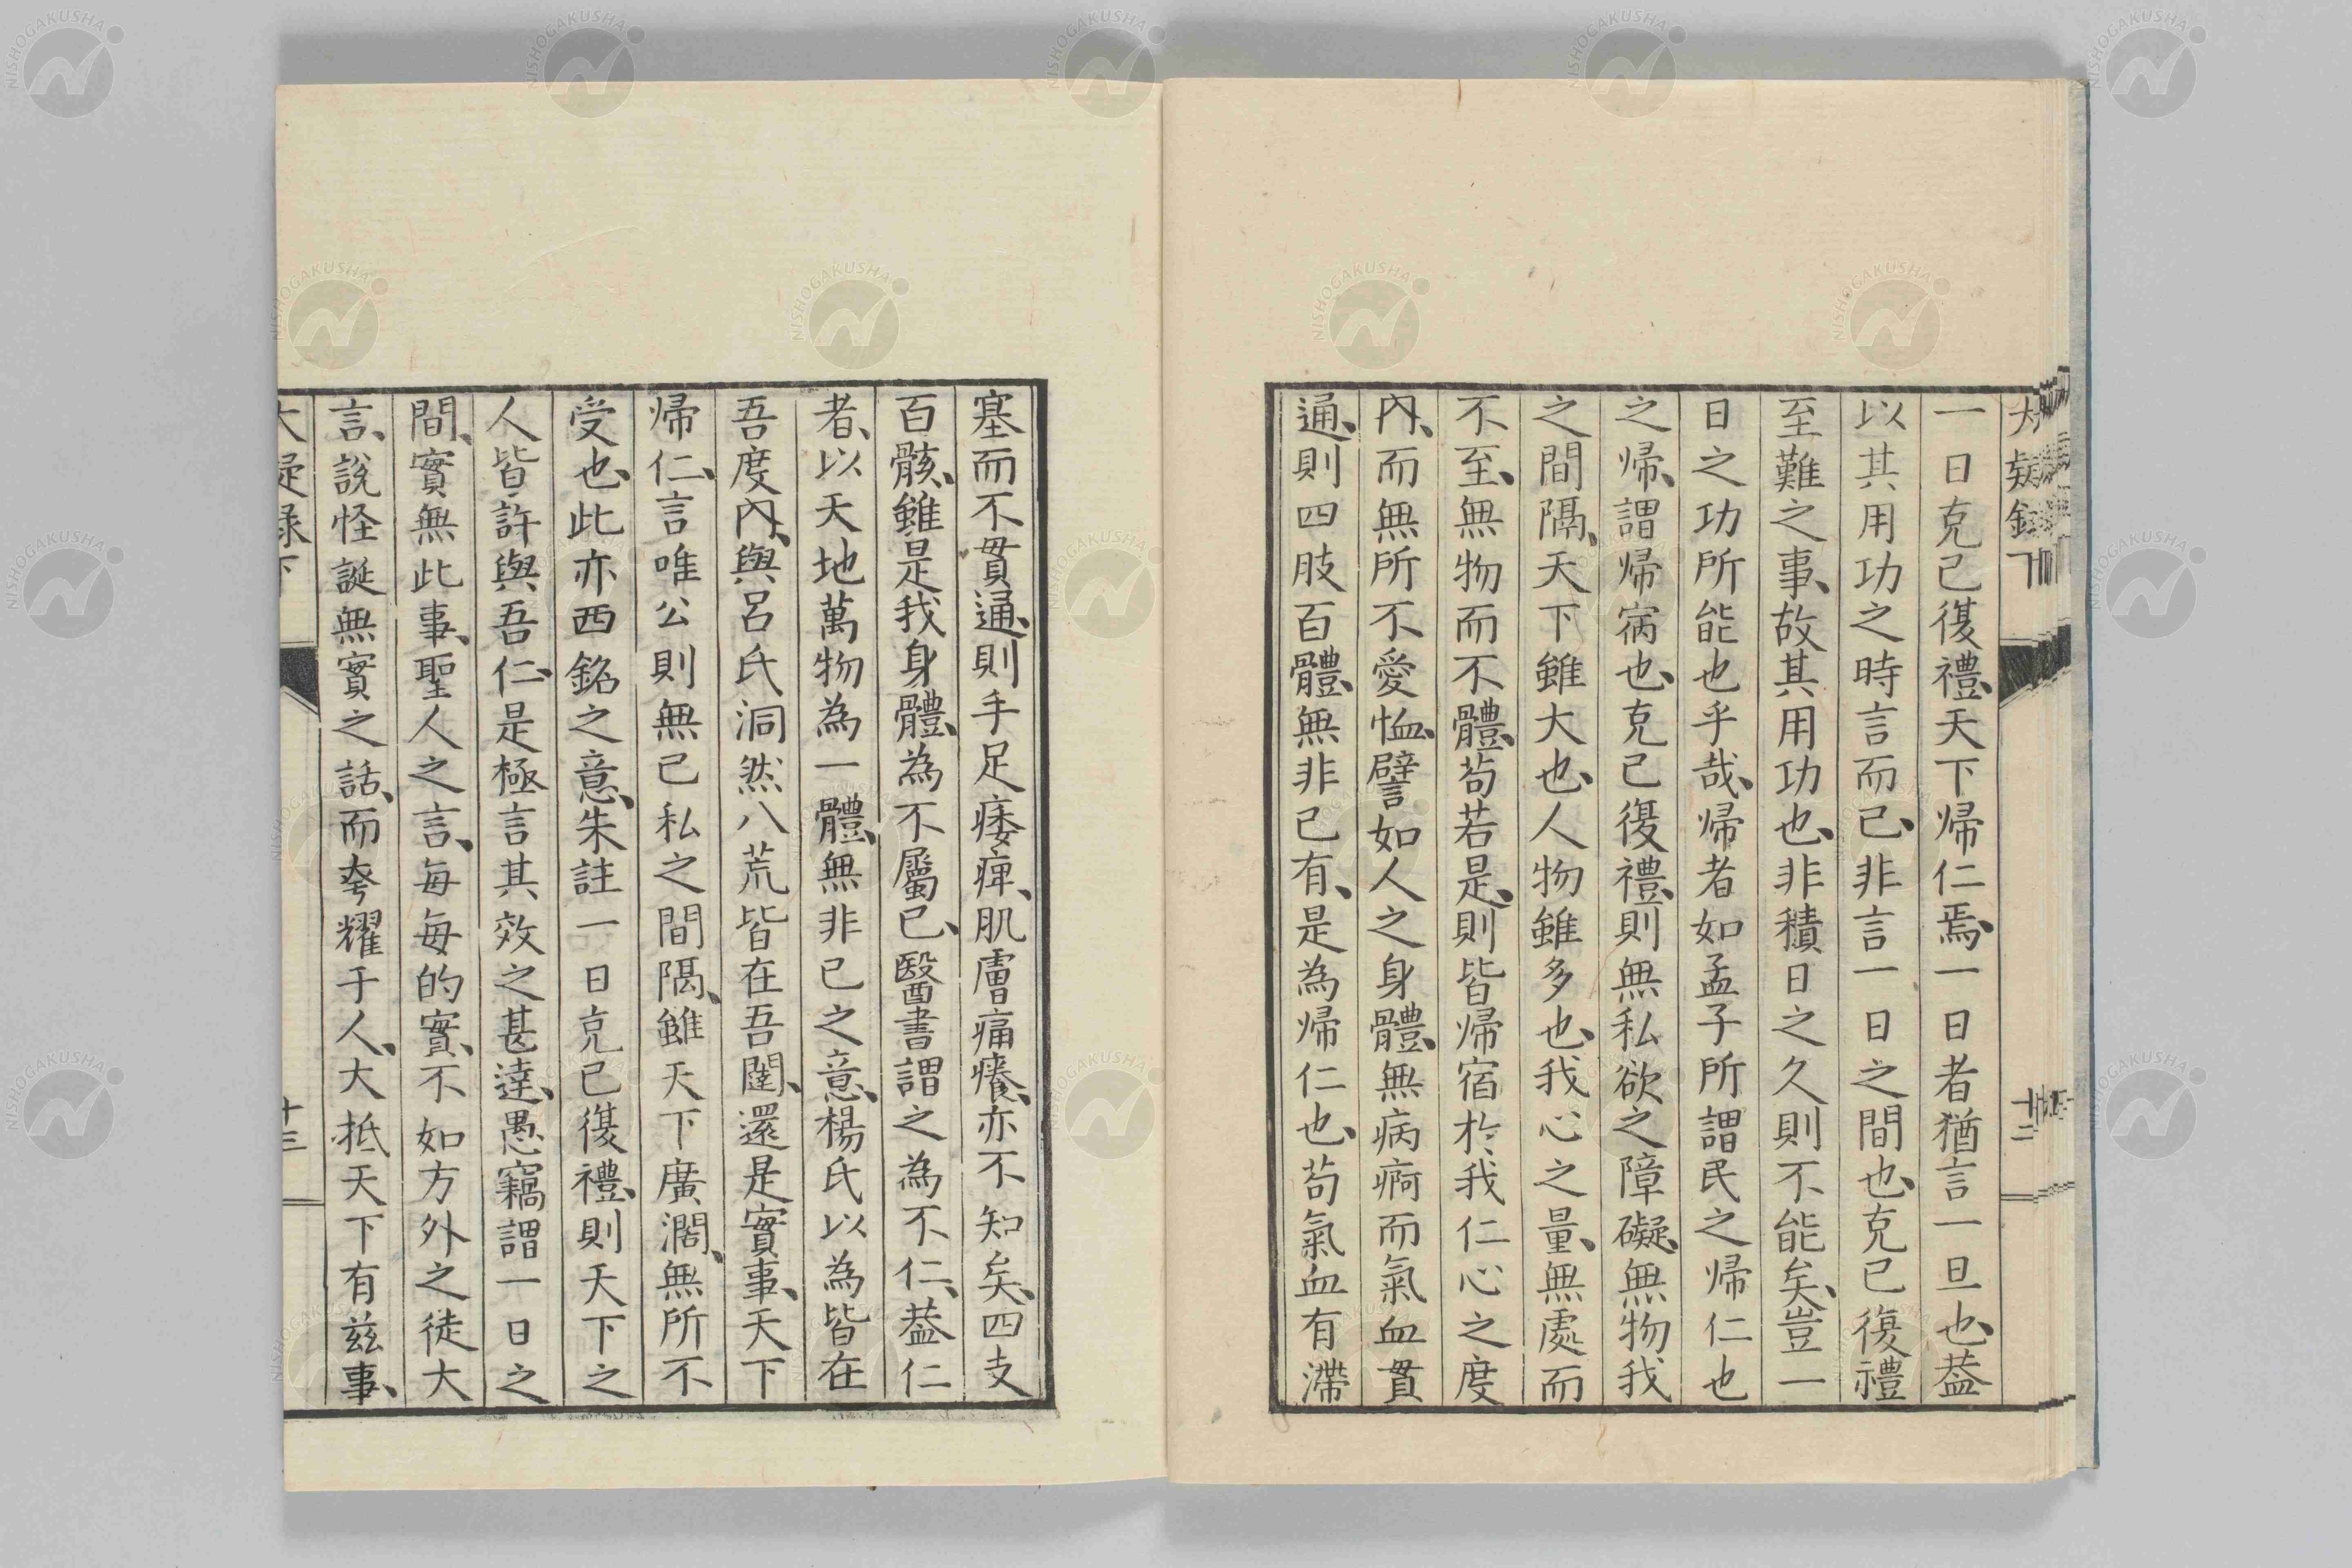 大疑録下
十二
一日克己復禮、天下帰仁焉、一日者猶言一旦也、葢
以其用功之時言而已、非言一日之間也、克己復禮
至難之事、故其用功也、非積日之久則不能矣、豈一
日之功所能也乎哉、帰者如孟子所謂民之帰仁也
之帰、謂帰宿也、克己復禮、則無私欲之障礙、無物我
之間隔、天下雖大也、人物雖多也、我心之量、無處而
不至、無物而不體、苟若是、則皆帰宿於我仁心之度
內、而無所不愛恤、譬如人之身體、無病痾而氣血貫
通、則四肢百體、無非己有、是為帰仁也、苟氣血有滯
塞而不貫通、則手足痿痺、肌膚痛癢、亦不知矣、四支
百骸、雖是我身體、為不屬己、醫書謂之為不仁、葢仁
者、以天地萬物為一體、無非己之意、楊氏以為皆在
吾度內、與呂氏洞然八荒皆在吾闥、還是實事、天下
帰仁、言唯公則無己私之間隔、雖天下廣濶、無所不
受也、此亦西銘之意、朱註一日克己復禮、則天下之
人皆許與吾仁、是極言其效之甚達、愚竊謂一日之
間、實無此事、聖人之言、每每的實、不如方外之徒大
言、說怪誕無實之話、而夸耀于人、大抵天下有茲事、
大疑録下
十三
NISHOGAKUSHA